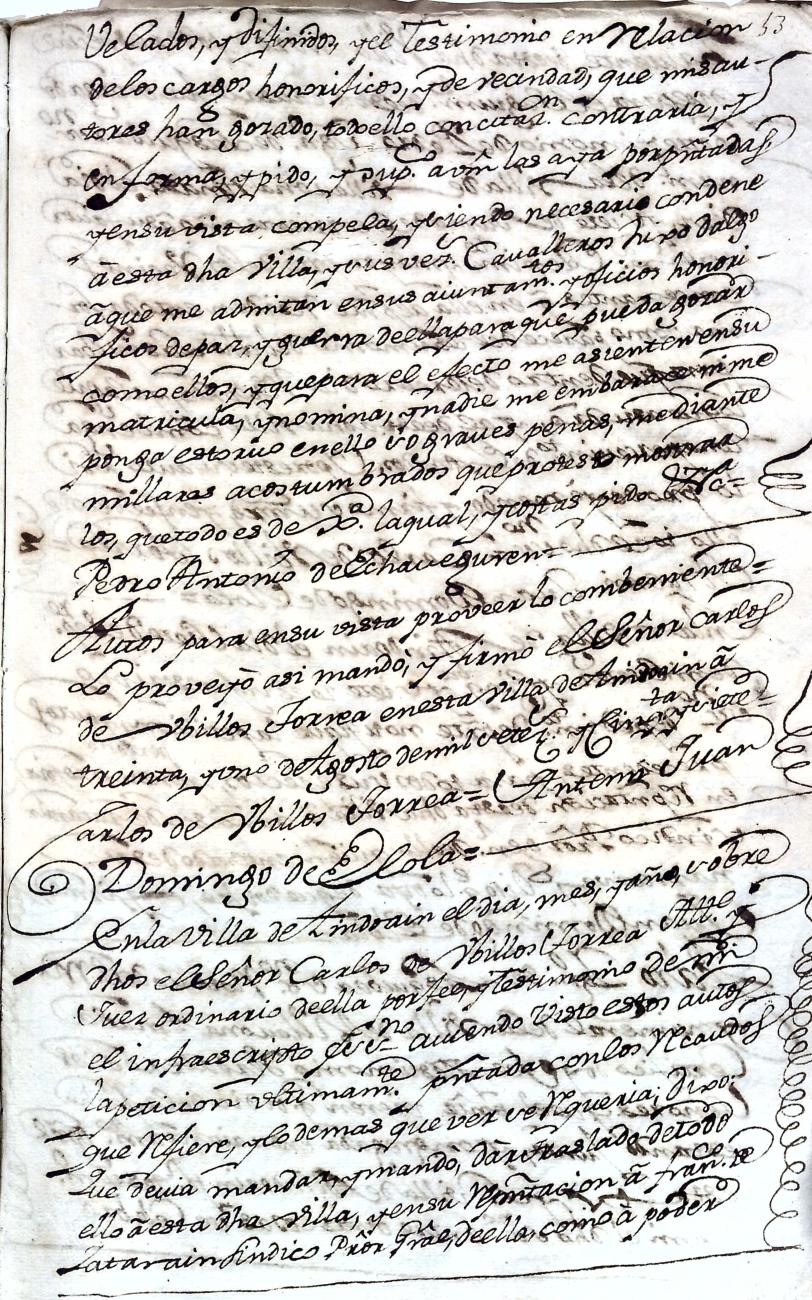 53
Velados, y difinidos, y el Testimonio en relacion
delos cargos honorificos, y de vecindad, que mis au-
tores han gozado, todo ello con citaz.on contraria, y
en forma, y pido, y sup.co a vm̃ las aya por pñtadas
y en su vista compela, y siendo necesario condene
à esta dha Villa, y sus vez.s Cavalleros hixo dalgo
àque me admitan ensus aiuntam.tos y oficios honori-
ficos de paz, y guerra de ella para que pueda gozar
como ellos, y que para el efecto me asienten en su
matricula, y nomina, y nadie me embarace ni me
ponga estorvo en ello so graves penas, mediante
millares acostumbrados que protesto mostrar
los, que todo es de Xa. la qual, y costas pido &c=
Pedro Antonio de Echavegurent
Autos para en su vista proveer lo combeniente=
Lo proveyò asi mandò, y firmò el Señor Carlos
de Vbillos Torrea en esta Villa de Andoain à
treinta, y uno de Agosto de mil sete.s y Cinq.ta y siete=
Carlos de Vbillos Torrea= Antemi Juan
Domingo de Elola=
Enla Villa de Andoain el dia, mes, y año, sobre
dhos el Señor Carlos de Vbillos Torrea Alle. y
Juez ordinario de ella por fee, y Testimonio de mi
el infraescripto ess.no aviendo Visto estos autos
la peticion vltimam.te pñtada con los recaudos
que refiere, y lo demas que ver se requeria; Dixo:
Que devia mandar, y mandò, dàr traslado de todo
ello à esta dha Villa, y en su rrepñtacion à fran.co de
Zatarain sindico Prõr Grãl, de ella, como à poder